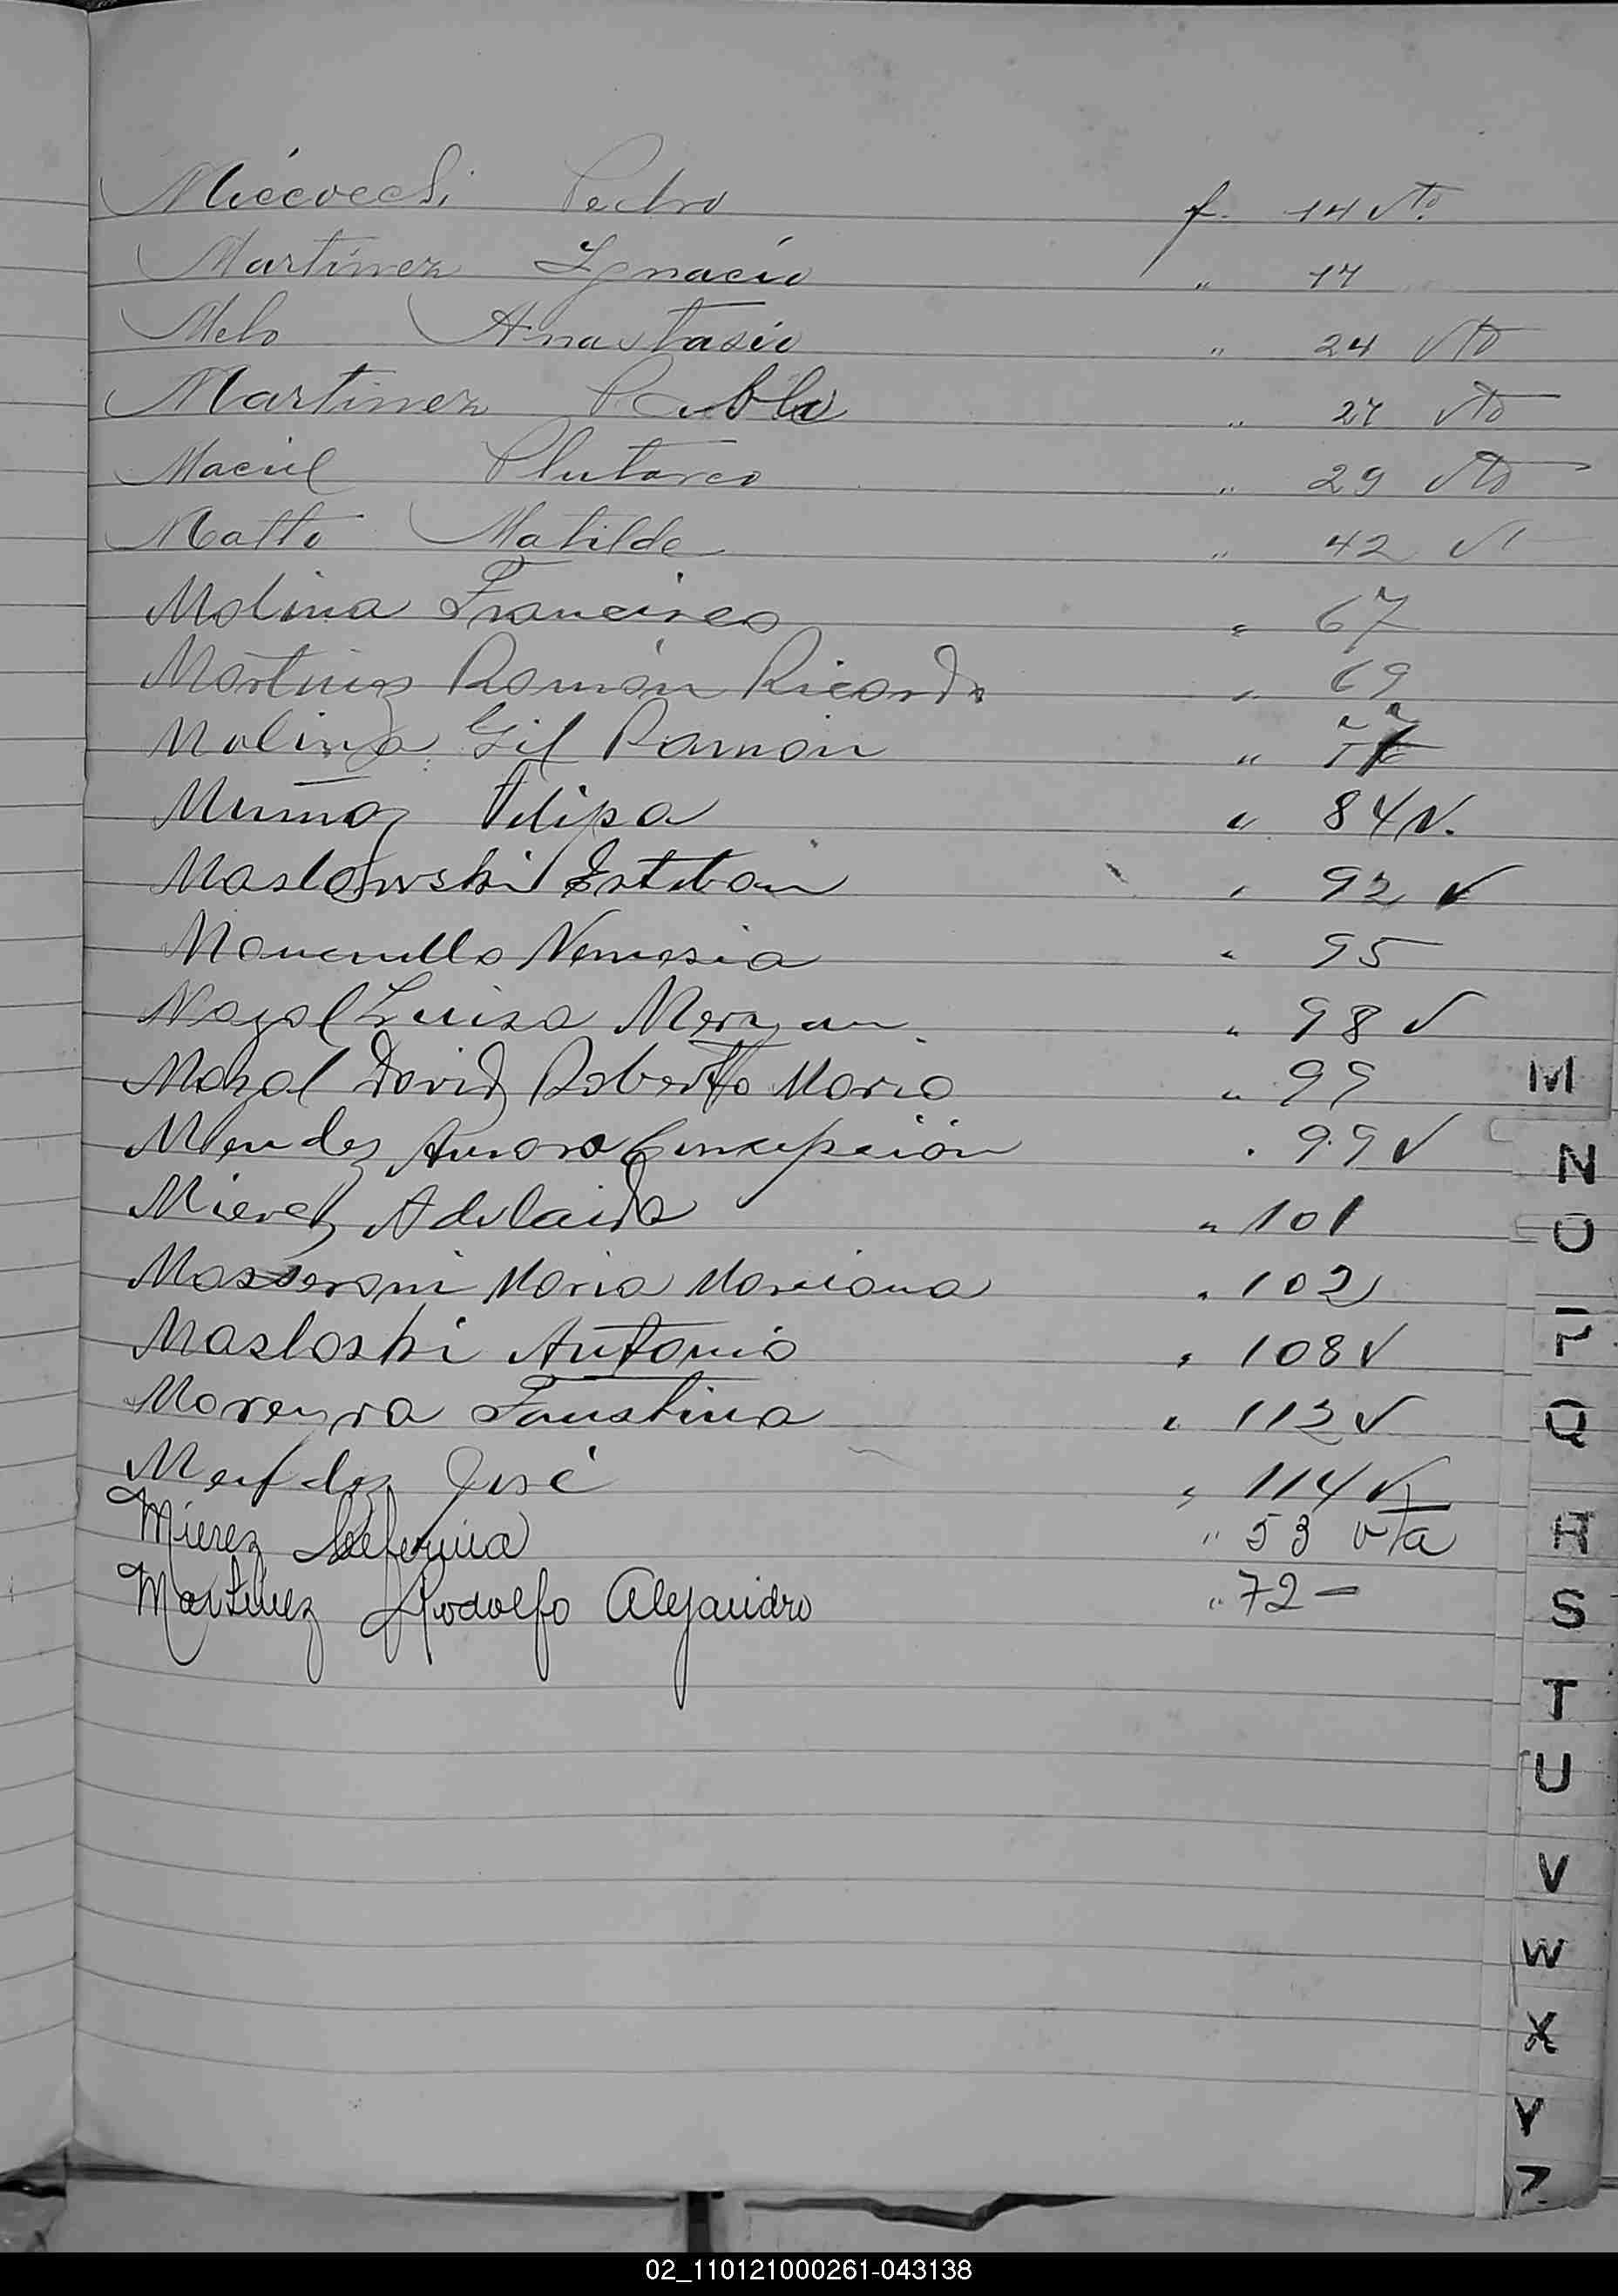 Miccoechi Pedro f. 14 vto.
Martinez Ignacio " 17
Melo Anastasio " 24 vto
Martinez Pablo " 27 vto
Maciel Plutarco " 29 vto
Matto Matilde " 42 vt
Molina Francisco " 67
Martinez Ramón Ricardo " 69
Molina Gil Ramón " 77
Muñoz Felipa " 84 v.
Maslowski Esteban " 92 v
Nemesia " 95
Mazal Luisa " 98 v
Mazal David Roberto Mario " 99
Mendez Aurora Concepción " 99 v
Mierez Adelaida " 101
Masseroni Maria Mariana " 102
Masloski Antonio " 108 v
Moreyra Faustina " 112 v
Mendez José " 114 v
Mierez Seferina " 53 vta
Martinez Rodolfo Alejandro " 72 -
M
N
O
P
Q
R
S
T
U
V
W
X
Y
Z
02_110121000261-043138